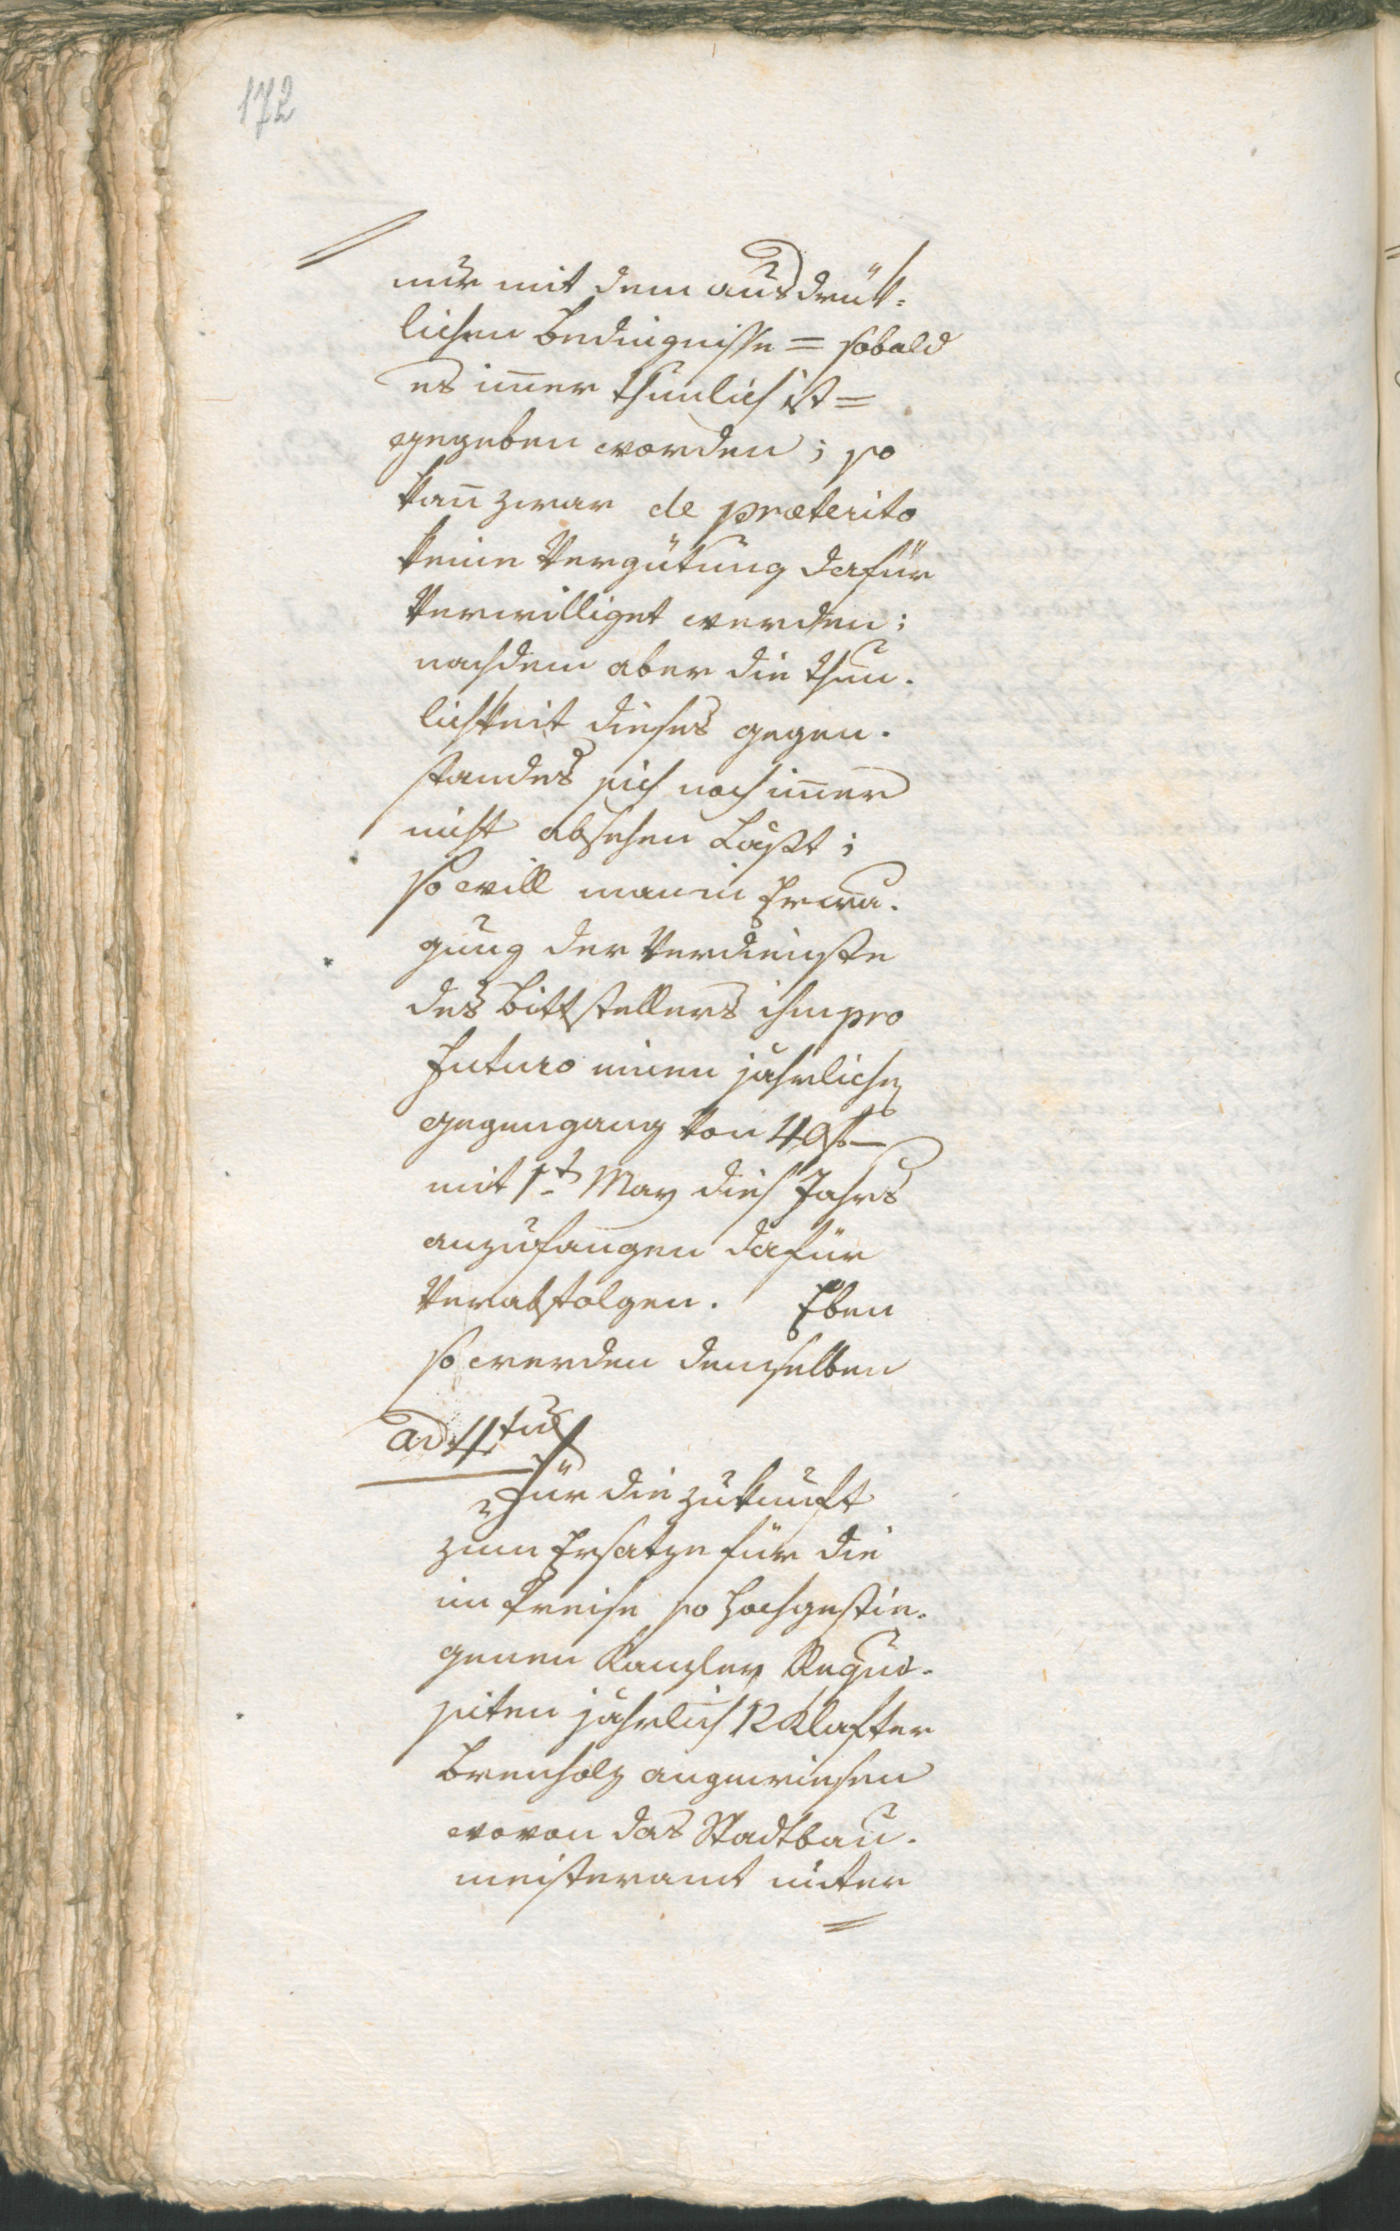 172
nur mit dem ausdrük¬
lichen Bedingnisse = sobald
es im̅er thunlich ist =
gegeben worden; so
kan̅ zwar de præterito
keine Vergütung dafür
Verwilliget werden:
nachdem aber die thun¬
lichkeit dieses gegen¬
standes sich noch im̅er
nicht absehen Laßt;
so will man in Erwä¬
gung der Verdienste
des Bittstellers ihm pro
futuro einen jährlichen
gegengang von 40 f
mit 1t May dies Jahrs
anzufangen dafür
Verabfolgen. Eben
so werden demselben
ad 4tum
Für die Zukunft
zum Ersatze für die
im Preise so hochgestie¬
genen Kanzley Requi¬
siten jährlich 12 Klafter
Brenholz angewiesen
wovon das Stadtbau¬
meisteramt unter